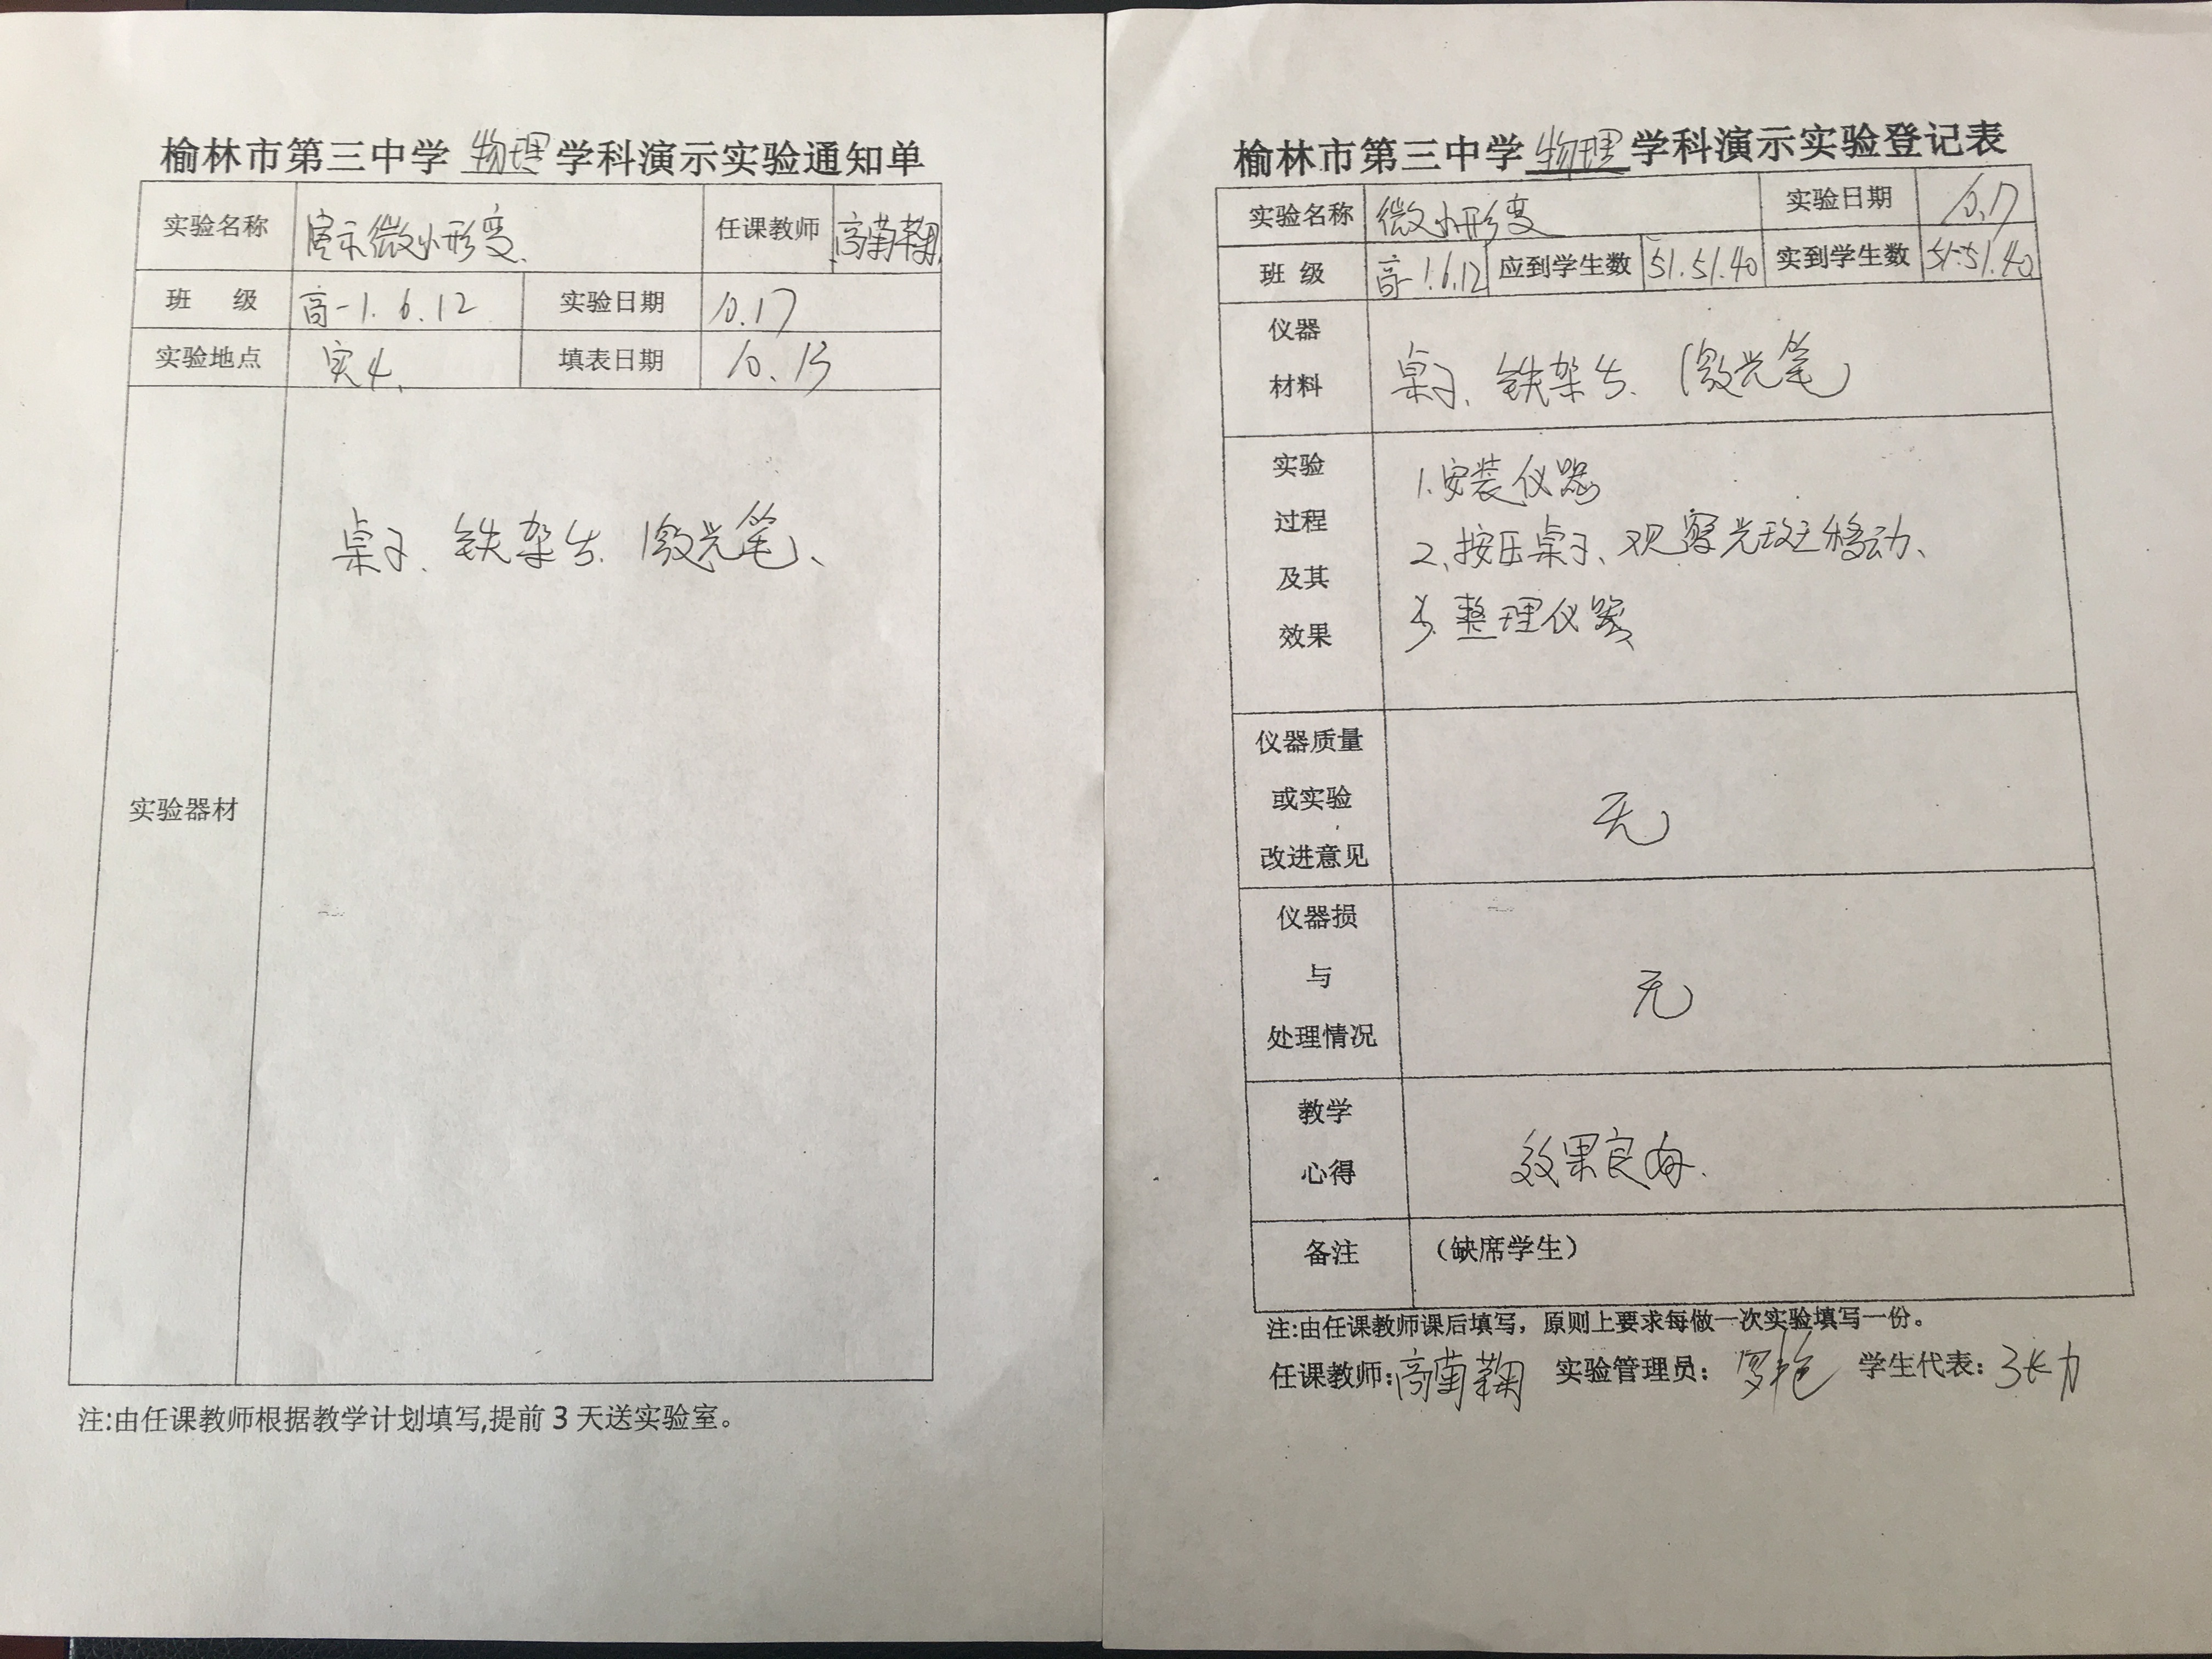 榆林市第三中学 物理 学科演示实验通知单
实验名称 展示微小形变 任课教师 高菊鞠
班 级 高一1.6.12 实验日期 10.17
实验地点 实4. 填表日期 10.13
实验器材
桌子、铁架台、激光笔、
注:由任课教师根据教学计划填写,提前3天送实验室。
榆林市第三中学 物理 学科演示实验登记表
实验名称 微小形变 实验日期 10.17
班 级 高一1.6.12 应到学生数 51.51.40 实到学生数 51.51.40
仪器
材料
桌子、铁架台、激光笔
实验
过程
及其
效果
1.安装仪器
2、按压桌子、观察光斑移动、
3.整理仪器、
仪器质量
或实验
改进意见
无
仪器损
与
处理情况
无
教学
心得
效果良好.
备注 （缺席学生）
注:由任课教师课后填写，原则上要求每做一次实验填写一份。
任课教师: 高菊鞠 实验管理员: 学生代表: 张力